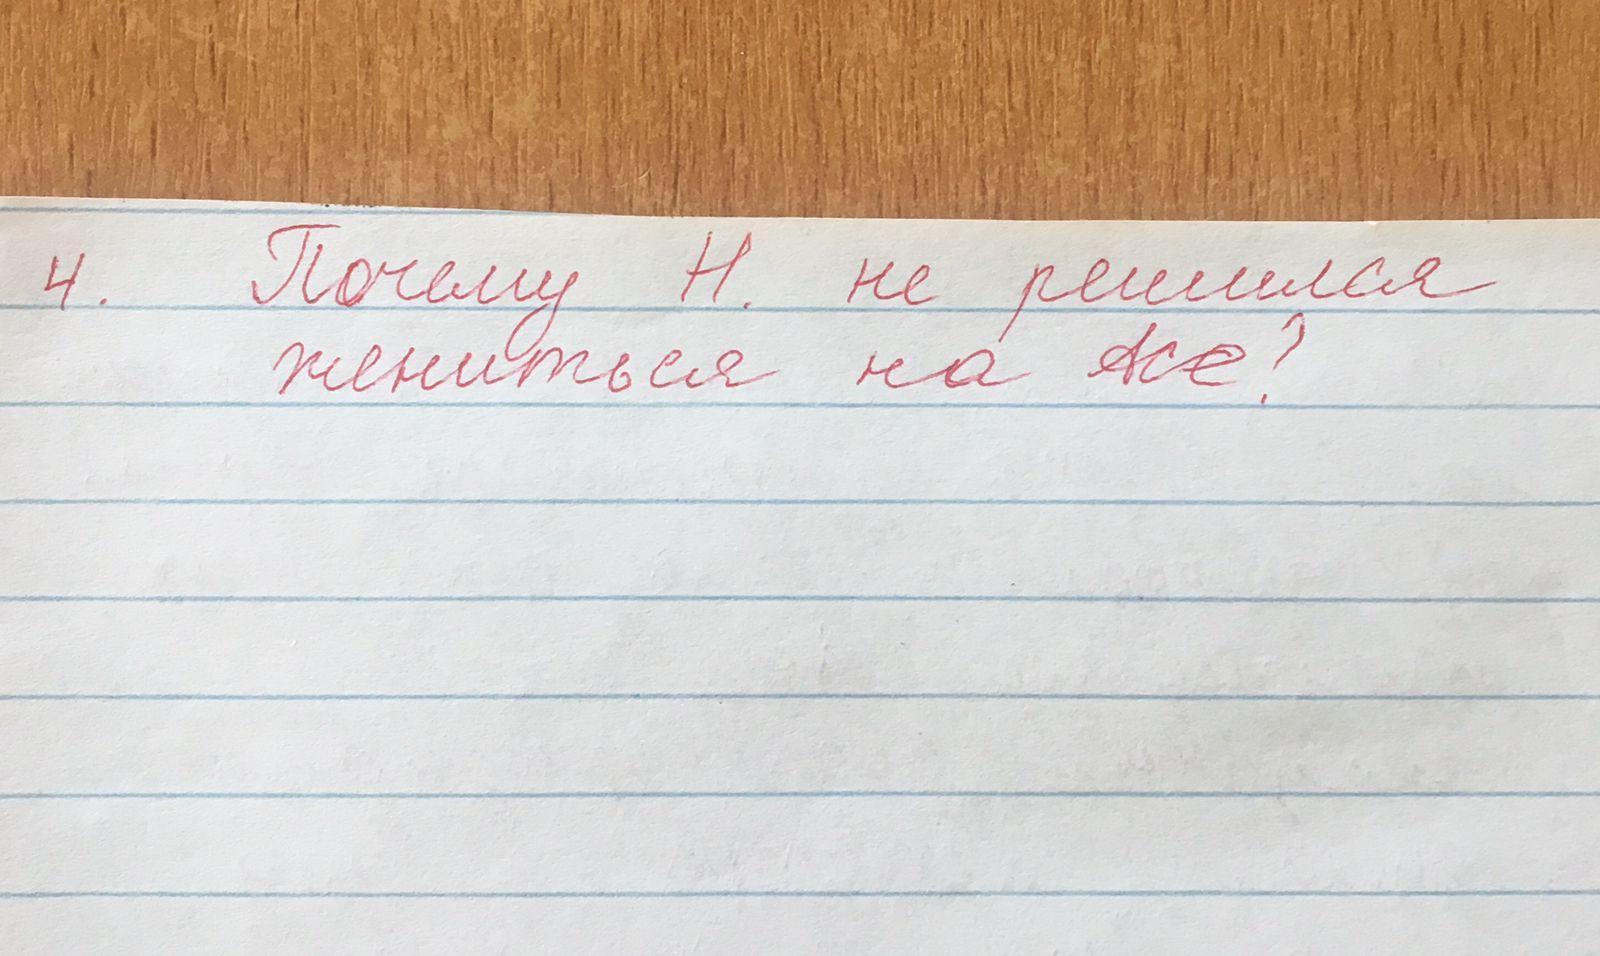 4. Почему Н. не решился
жениться на Асе?